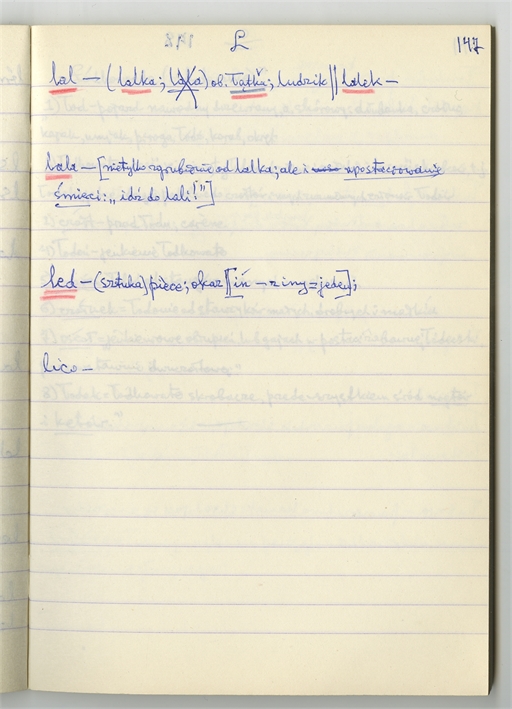 L 147
lal – (lalka; lala) ob. Tątka; ludzik || lalek –
lala – [nietylko zgrubienie od lalka; ale i upostaciowanie
śmieci: „idź do lali!"]
led – (sztuka) pièce; okaz || [iń – z iny = jeden];
lico –